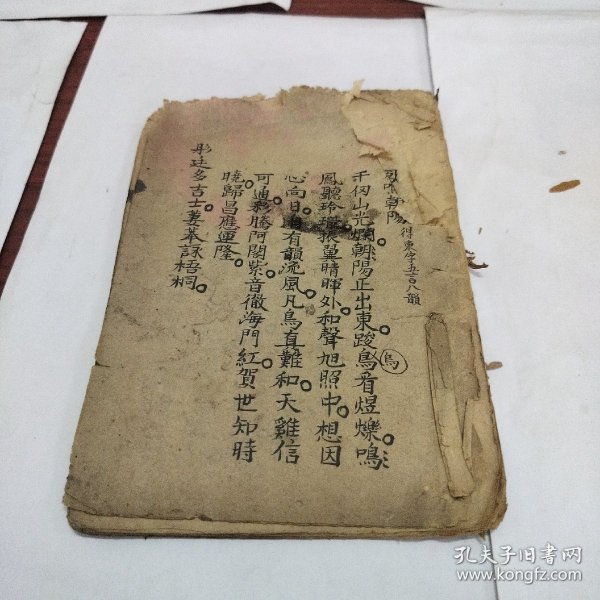 朝陽 得東字五言八韻
千仞山光爛。朝陽正出東。踆鳥看煜爍。鳴
烏
鳳聽玲瓏。振翼晴暉外。和聲旭照中。想因
心向日。有韻流風。凡鳥直難和。天雞信
可通。彩騰阿閣紫。音徹海門紅。賀世知時
曉。歸昌應運隆。
彤廷多吉士。萋菶詠梧桐。
孔夫子旧书网
www.kongfz.com